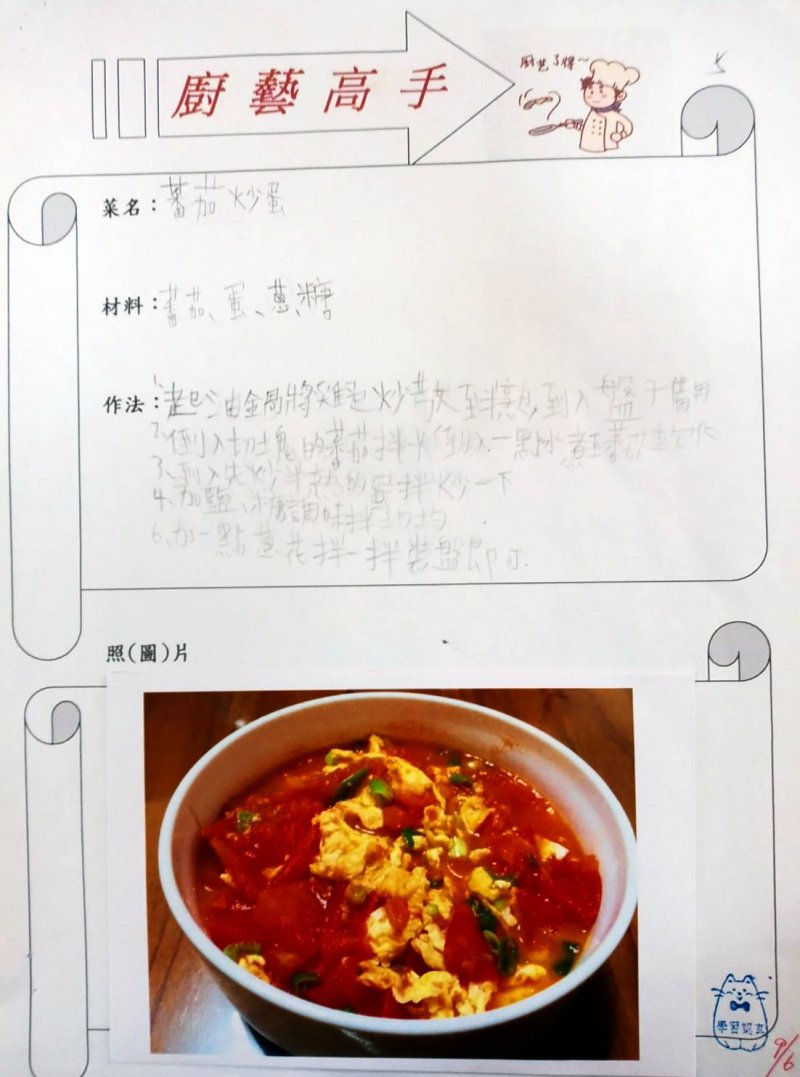 廚藝高手
廚艺了得~
5
菜名：蕃茄炒蛋
材料：蕃茄、蛋、蔥、糖
作法：1、起油鍋將雞蛋炒散至半熟,到入盤子備用
2、倒入切塊的蕃茄拌炒倒入一點水煮至蕃茄軟化
3、到入先炒半熟的蛋拌炒一下
4、加鹽、糖調味拌均均
6、加一點蔥花拌一拌裝盤即可.
照(圖)片
學習認真
9/6